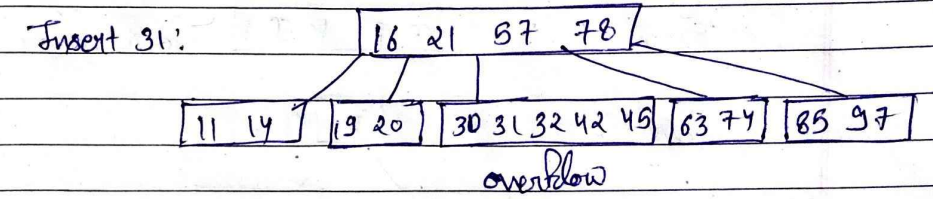 Insert 31:
16 21 57 78
11 14 19 20 30 31 32 42 45 63 74 85 97
overflow